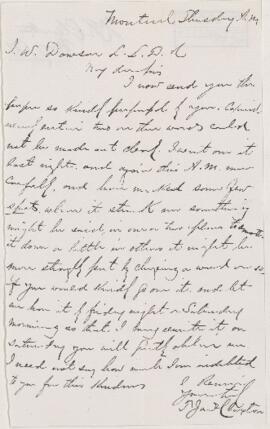 Montreal Thursday A.M.
J. W. Dawson L.L.D. &
My dear Sir
I now send you the
paper so kindly prepared of yours.
two or three words could
not be made out clearly. I went over it
last night, and again this A.M. more
carefully, and have marked some few
spots, where it struck me something
might be said, in one or two places to
it down a little in others it might be
more strongly put by changing a word or so.
If you would kindly go over it, and let
me have it friday night or Saturday
morning so that I may it on
Saturday you will greatly oblige me
I need not say how much I am indebted
to you for this kindness
I Remain
Yours truly